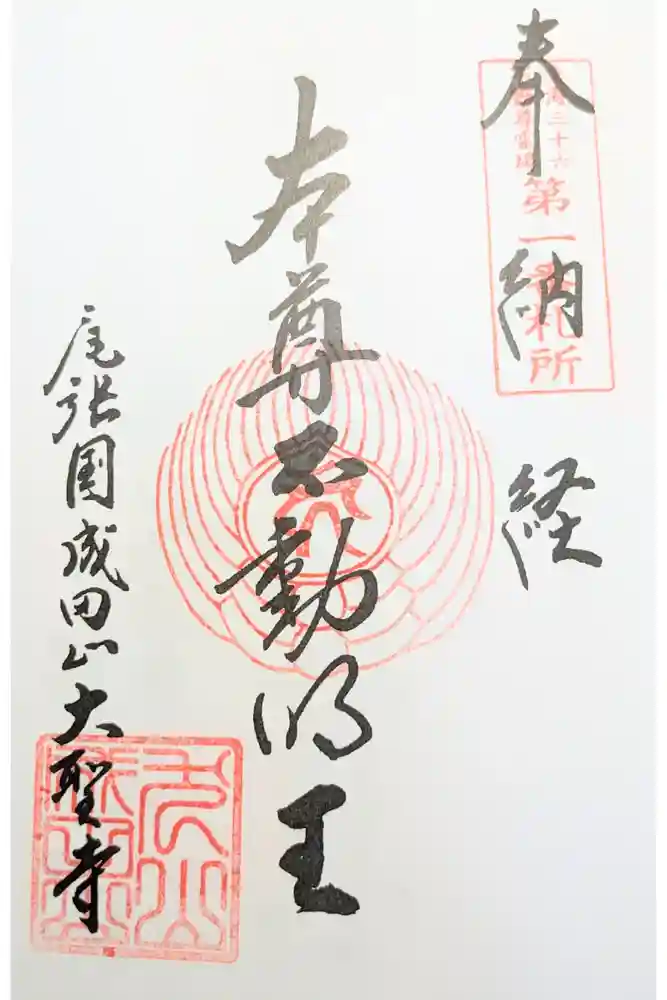 奉納経
海三十六
尊霊場
第一番札所
本尊不動明王
尾張国成田山大聖寺